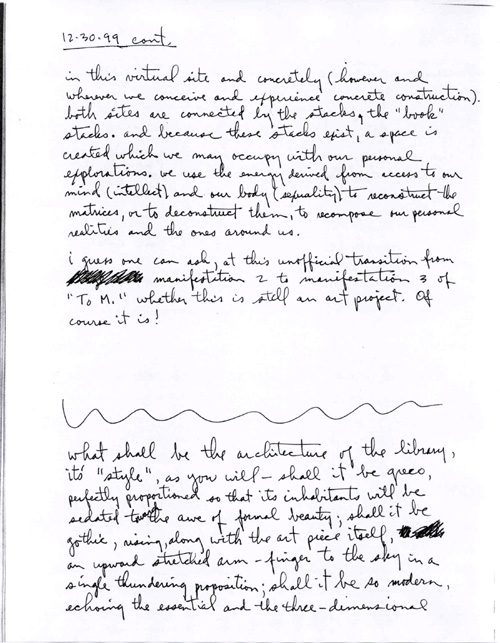 12.30.99 cont.
in this virtual site and concretely (however and
wherever we conceive and experience concrete construction).
both sites are connected by the stacks, the "book"
stacks. and because these stacks exist, a space is
created which we may occupy with our personal
explorations. we use the energy derived from access to our
mind (intellect) and our body (sexuality) to reconstruct the
matrices, or to deconstruct them, to recompose our personal
realities and the ones around us.
i guess one can ask, at this unofficial transition from
manifestation 2 to manifestation 3 of
"To M." whether this is still an art project. Of
course it is!
what shall be the architecture of the library,
its "style", as you will – shall it be greco,
perfectly proportioned so that its inhabitants will be
sedated the awe of formal beauty; shall it be
gothic, rising, along with the art piece itself,
an upward stretched arm – finger to the sky in a
single thundering proposition; shall it be so modern,
echoing the essential and the three-dimensional